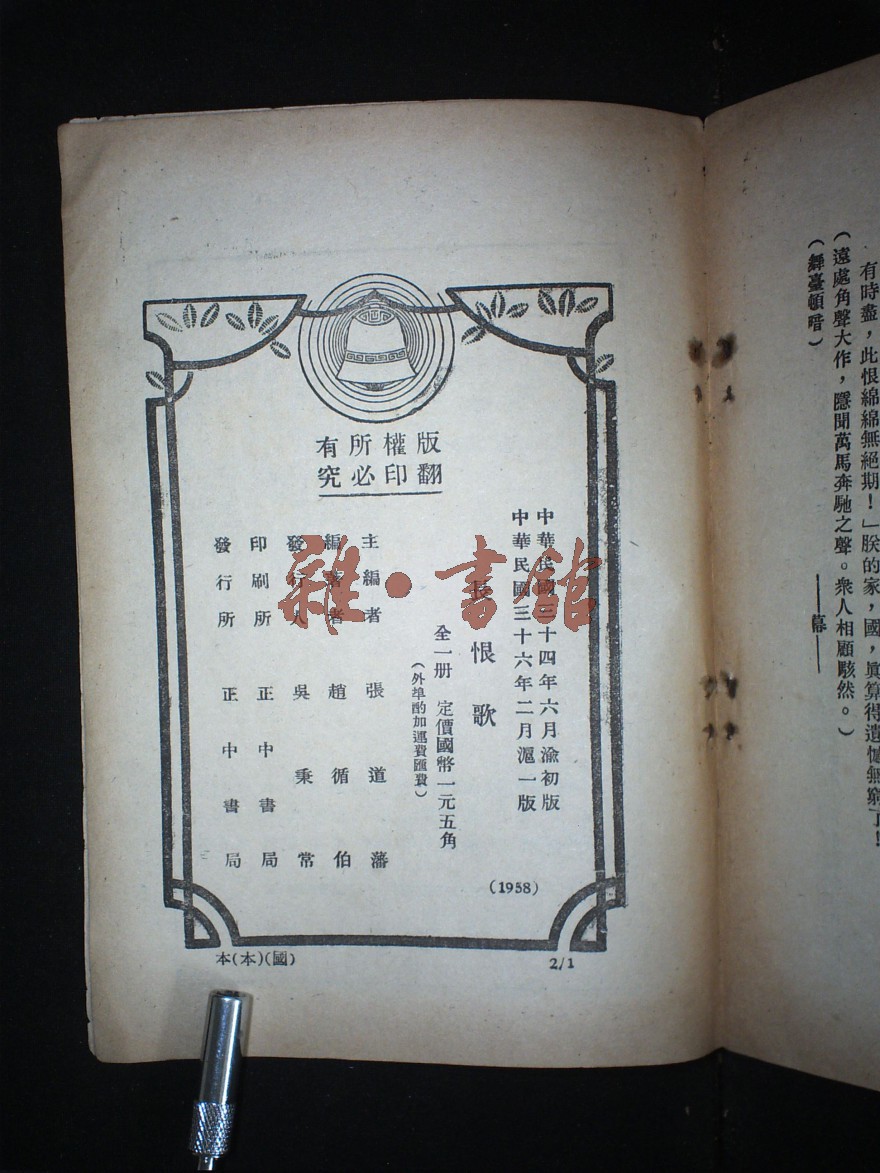 有時盡，此恨綿綿無絕期！」朕的家，國，眞算得遺憾無窮了！
（遠處角聲大作，隱聞萬馬奔馳之聲。衆人相顧駭然。）
（舞臺頓暗）
——幕——
版權所有
翻印必究
中華民國三十四年六月渝初版
中華民國三十六年二月滬一版
長恨歌
全一册 定價國幣一元五角
（外埠酌加運費匯費）
主編者 張道藩
編著者 趙循伯
發行人 吳秉常
印刷所 正中書局
發行所 正中書局
(1958)
本(本)(國)
2/1
雜·書館